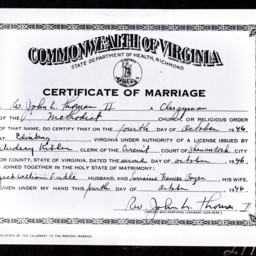 COMMONWEALTH OF VIRGINIA
STATE DEPARTMENT OF HEALTH, RICHMOND
CERTIFICATE OF MARRIAGE
Rev. John L. Thomas II A Clergyman
OF THE Methodist CHURCH OR RELIGIOUS ORDER
OF THAT NAME, DO CERTIFY THAT ON THE fourth DAY OF October 1946
AT VIRGINIA UNDER AUTHORITY OF A LICENSE ISSUED
CLERK OF THE Circuit COURT OF Shenandoah CITY
OR COUNTY, STATE OF VIRGINIA, DATED THE second DAY OF October 1946.
JOINED TOGETHER IN THE HOLY STATE OF MATRIMONY:
HUSBAND, AND Lorraine Frances WIFE.
GIVEN UNDER MY HAND THIS fourth DAY OF October 1946
Rev. John L. Thomas II